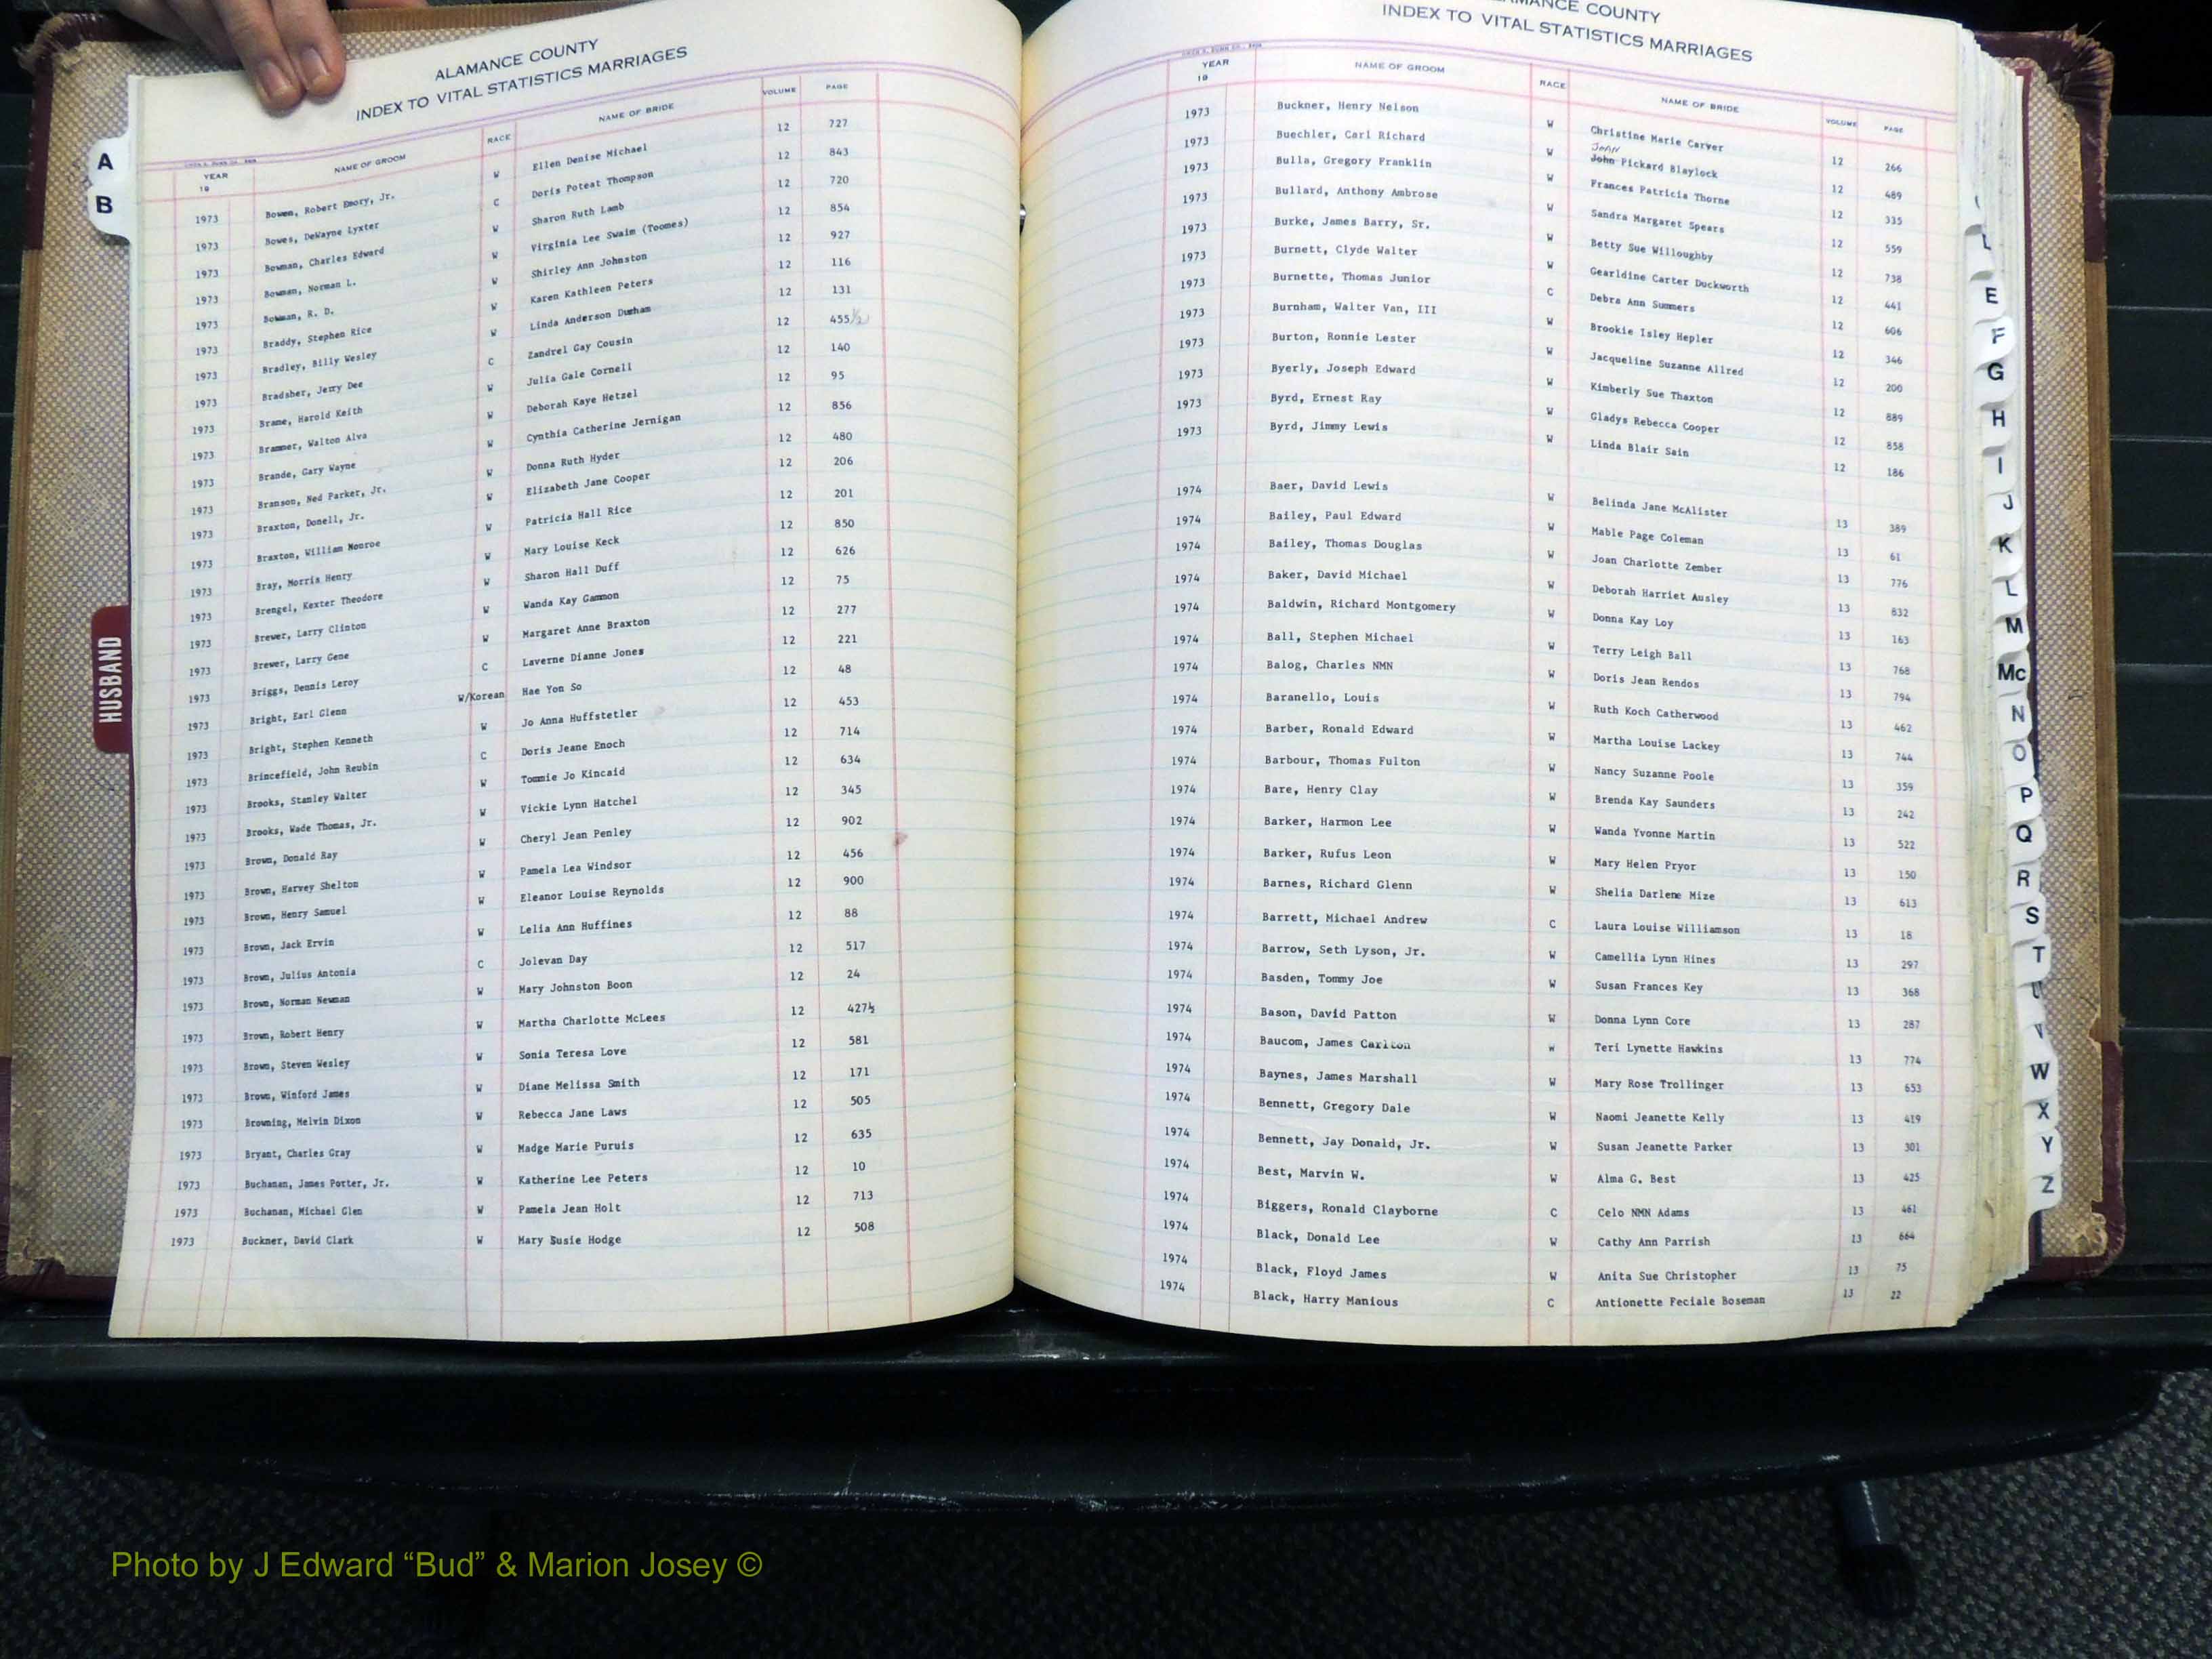 ALAMANCE COUNTY
INDEX TO VITAL STATISTICS MARRIAGES
YEAR 19 NAME OF GROOM RACE NAME OF BRIDE VOLUME PAGE
1973 Bowen, Robert Emory, Jr. W Ellen Denise Michael 12 727
1973 Bowes, DeWayne Lyxter C Doris Poteat Thompson 12 843
1973 Bowman, Charles Edward W Sharon Ruth Lamb 12 720
1973 Bowman, Norman L. W Virginia Lee Swaim (Toomes) 12 854
1973 Bowman, R. D. W Shirley Ann Johnston 12 927
1973 Braddy, Stephen Rice W Karen Kathleen Peters 12 116
1973 Bradley, Billy Wesley W Linda Anderson Durham 12 131
1973 Bradsher, Jerry Dee C Zandrel Gay Cousin 12 455½
1973 Brame, Harold Keith W Julia Gale Cornell 12 140
1973 Brammer, Walton Alva W Deborah Kaye Hetzel 12 95
1973 Brande, Gary Wayne W Cynthia Catherine Jernigan 12 856
1973 Branson, Ned Parker, Jr. W Donna Ruth Hyder 12 480
1973 Braxton, Donell, Jr. W Elizabeth Jane Cooper 12 206
1973 Braxton, William Monroe W Patricia Hall Rice 12 201
1973 Bray, Morris Henry W Mary Louise Keck 12 850
1973 Brengel, Kexter Theodore W Sharon Hall Duff 12 626
1973 Brewer, Larry Clinton W Wanda Kay Gammon 12 75
1973 Brewer, Larry Gene W Margaret Anne Braxton 12 277
1973 Briggs, Dennis Leroy C Laverne Dianne Jones 12 221
1973 Bright, Earl Glenn W/Korean Hae Yon So 12 48
1973 Bright, Stephen Kenneth W Jo Anna Huffstetler 12 453
1973 Brincefield, John Reubin C Doris Jeane Enoch 12 714
1973 Brooks, Stanley Walter W Tommie Jo Kincaid 12 634
1973 Brooks, Wade Thomas, Jr. W Vickie Lynn Hatchel 12 345
1973 Brown, Donald Ray W Cheryl Jean Penley 12 902
1973 Brown, Harvey Shelton W Pamela Lea Windsor 12 456
1973 Brown, Henry Samuel W Eleanor Louise Reynolds 12 900
1973 Brown, Jack Ervin W Lelia Ann Huffines 12 88
1973 Brown, Julius Antonia C Jolevan Day 12 517
1973 Brown, Norman Newman W Mary Johnston Boon 12 24
1973 Brown, Robert Henry W Martha Charlotte McLees 12 427½
1973 Brown, Steven Wesley W Sonia Teresa Love 12 581
1973 Brown, Winford James W Diane Melissa Smith 12 171
1973 Browning, Melvin Dixon W Rebecca Jane Laws 12 505
1973 Bryant, Charles Gray W Madge Marie Puruis 12 635
1973 Buchanan, James Potter, Jr. W Katherine Lee Peters 12 10
1973 Buchanan, Michael Glen W Pamela Jean Holt 12 713
1973 Buckner, David Clark W Mary Susie Hodge 12 508
A
B
HUSBAND
ALAMANCE COUNTY
INDEX TO VITAL STATISTICS MARRIAGES
YEAR 19 NAME OF GROOM RACE NAME OF BRIDE VOLUME PAGE
1973 Buckner, Henry Nelson W Christine Marie Carver 12 266
Joan
1973 Buechler, Carl Richard W John Pickard Blaylock 12 489
1973 Bulla, Gregory Franklin W Frances Patricia Thorne 12 335
1973 Bullard, Anthony Ambrose W Sandra Margaret Spears 12 559
1973 Burke, James Barry, Sr. W Betty Sue Willoughby 12 738
1973 Burnett, Clyde Walter W Gearldine Carter Duckworth 12 441
1973 Burnette, Thomas Junior C Debra Ann Summers 12 606
1973 Burnham, Walter Van, III W Brookie Isley Hepler 12 346
1973 Burton, Ronnie Lester W Jacqueline Suzanne Allred 12 200
1973 Byerly, Joseph Edward W Kimberly Sue Thaxton 12 889
1973 Byrd, Ernest Ray W Gladys Rebecca Cooper 12 858
1973 Byrd, Jimmy Lewis W Linda Blair Sain 12 186
1974 Baer, David Lewis W Belinda Jane McAlister 13 389
1974 Bailey, Paul Edward W Mable Page Coleman 13 61
1974 Bailey, Thomas Douglas W Joan Charlotte Zember 13 776
1974 Baker, David Michael W Deborah Harriet Ausley 13 832
1974 Baldwin, Richard Montgomery W Donna Kay Loy 13 163
1974 Ball, Stephen Michael W Terry Leigh Ball 13 768
1974 Balog, Charles NMN W Doris Jean Rendos 13 794
1974 Baranello, Louis W Ruth Koch Catherwood 13 462
1974 Barber, Ronald Edward W Martha Louise Lackey 13 744
1974 Barbour, Thomas Fulton W Nancy Suzanne Poole 13 359
1974 Bare, Henry Clay W Brenda Kay Saunders 13 242
1974 Barker, Harmon Lee W Wanda Yvonne Martin 13 522
1974 Barker, Rufus Leon W Mary Helen Pryor 13 150
1974 Barnes, Richard Glenn W Shelia Darlene Mize 13 613
1974 Barrett, Michael Andrew C Laura Louise Williamson 13 18
1974 Barrow, Seth Lyson, Jr. W Camellia Lynn Hines 13 297
1974 Basden, Tommy Joe W Susan Frances Key 13 368
1974 Bason, David Patton W Donna Lynn Core 13 287
1974 Baucom, James Carlton W Teri Lynette Hawkins 13 774
1974 Baynes, James Marshall W Mary Rose Trollinger 13 653
1974 Bennett, Gregory Dale W Naomi Jeanette Kelly 13 419
1974 Bennett, Jay Donald, Jr. W Susan Jeanette Parker 13 301
1974 Best, Marvin W. W Alma G. Best 13 425
1974 Biggers, Ronald Clayborne C Celo NMN Adams 13 461
1974 Black, Donald Lee W Cathy Ann Parrish 13 664
1974 Black, Floyd James W Anita Sue Christopher 13 75
1974 Black, Harry Manious C Antionette Feciale Boseman 13 22
E
F
G
H
I
J
K
L
M
Mc
N
O
P
Q
R
S
T
U
V
W
X
Y
Z
Photo by J Edward “Bud” & Marion Josey ©